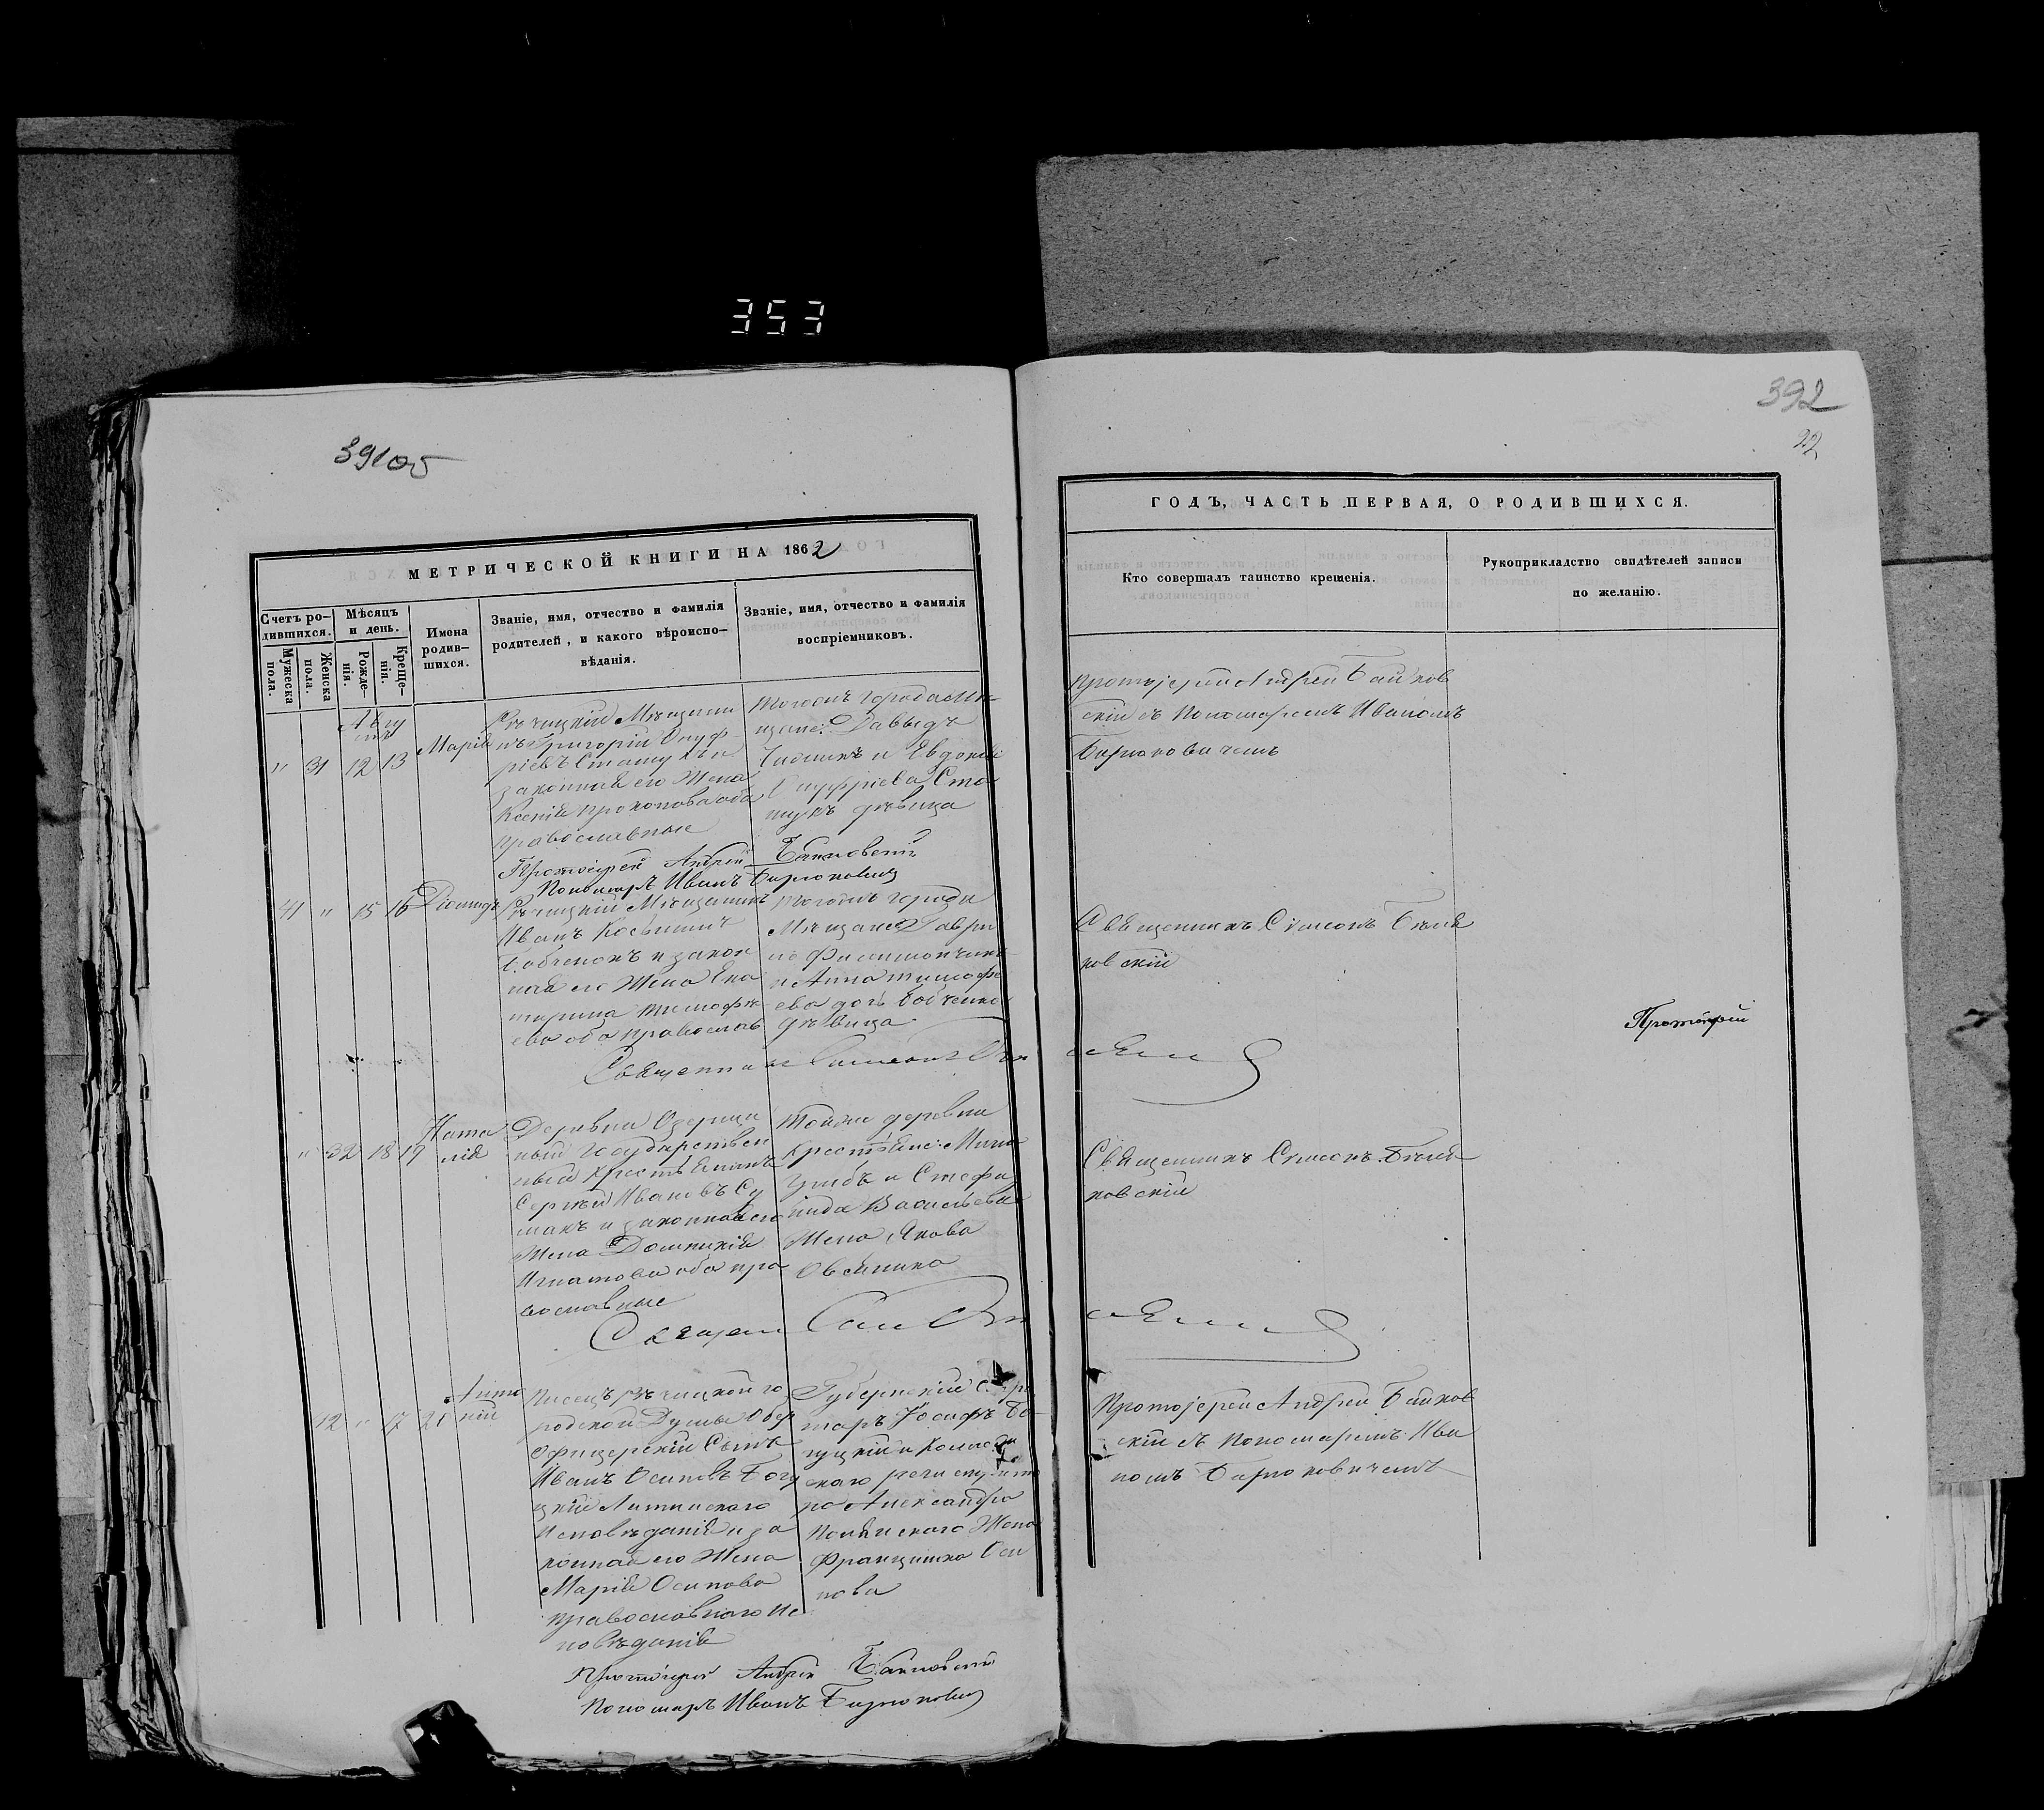 353
391об
392
22
МЕТРИЧЕСКОЙ КНИГИ НА 1862
ГОДЪ, ЧАСТЬ ПЕРВАЯ, О РОДИВШИХСЯ.
Счетъ ро-
дившихся.
Мужеска
пола.
Женска
пола.
Мѣсяцъ
и день.
Рожде-
нія.
Креще-
нія.
Имена
родив-
шихся.
Званіе, имя, отчество и фамилія
родителей, и какого вѣроиспо-
вѣданія.
Званіе, имя, отчество и фамилія
воспріемниковъ.
Кто совершалъ таинство крещенія.
Рукоприкладство свидѣтелей записи
по желанію.
Авгу
ста
" 31 12 13
Марія
Рѣчицкій Мѣщани
нъ Григорій Онуф
ріевъ Статукъ и
законная его Жена
Ксенія Прокопова оба
православные
тогожъ города Мѣ-
щане: Давыдъ
и Евдокія
Онуфріева Ста
тукъ дѣвица
Протоіерей Андрей Байков
скій съ Пономаремъ Иваномъ
Бирюковичемъ
Протоіерей Андрей Байковскій
Пономарь Иванъ Бирюковичъ
41 " 15 16
Діомидъ
Рѣчицкій Мѣщанинъ
Иванъ
и закон
ная его Жена Ека
терина Тимофѣ
ева оба православ
тогожъ города
Мѣщане Гаври
ло
и Анна Тимофѣ
ева дочь
дѣвица
Священникъ Сѵмеонъ Бѣля
новскій
Священникъ Симеонъ
Протоіерей
" 32 18 19
Ната
лія
Деревни Озерщи
ный Государствен
ный крестьянинъ
Сергѣй Ивановъ Су
макъ и законная его
Жена Домникія
Игнатова оба пра
вославные
тойже деревни
Крестьяне:
и Стефа
нида Васильева
Жена Якова
Овсяника
Священникъ Сѵмеонъ Бѣля
новскій
42 " 17 21
Анто
ній
Писецъ Рѣчицкой го
родской Думы Обер
Офицерскій Сынъ
Иванъ Осиповъ Богу
цкій Латинскаго
Исповѣданія и за
конная его Жена
Марія Осипова
православнаго Ис
повѣданія
Губернскій Секре
таръ Іосифъ Бо-
гуцкій и Коллеж
скаго регистрато
ра Александра
Жена
Францишка Оси
пова
Протоіерей Андрей Байков
скій съ Пономаремъ Ива
номъ Бирюковичемъ
Протоіерей Андрей Байковскій
Пономарь Иванъ Бирюковичъ